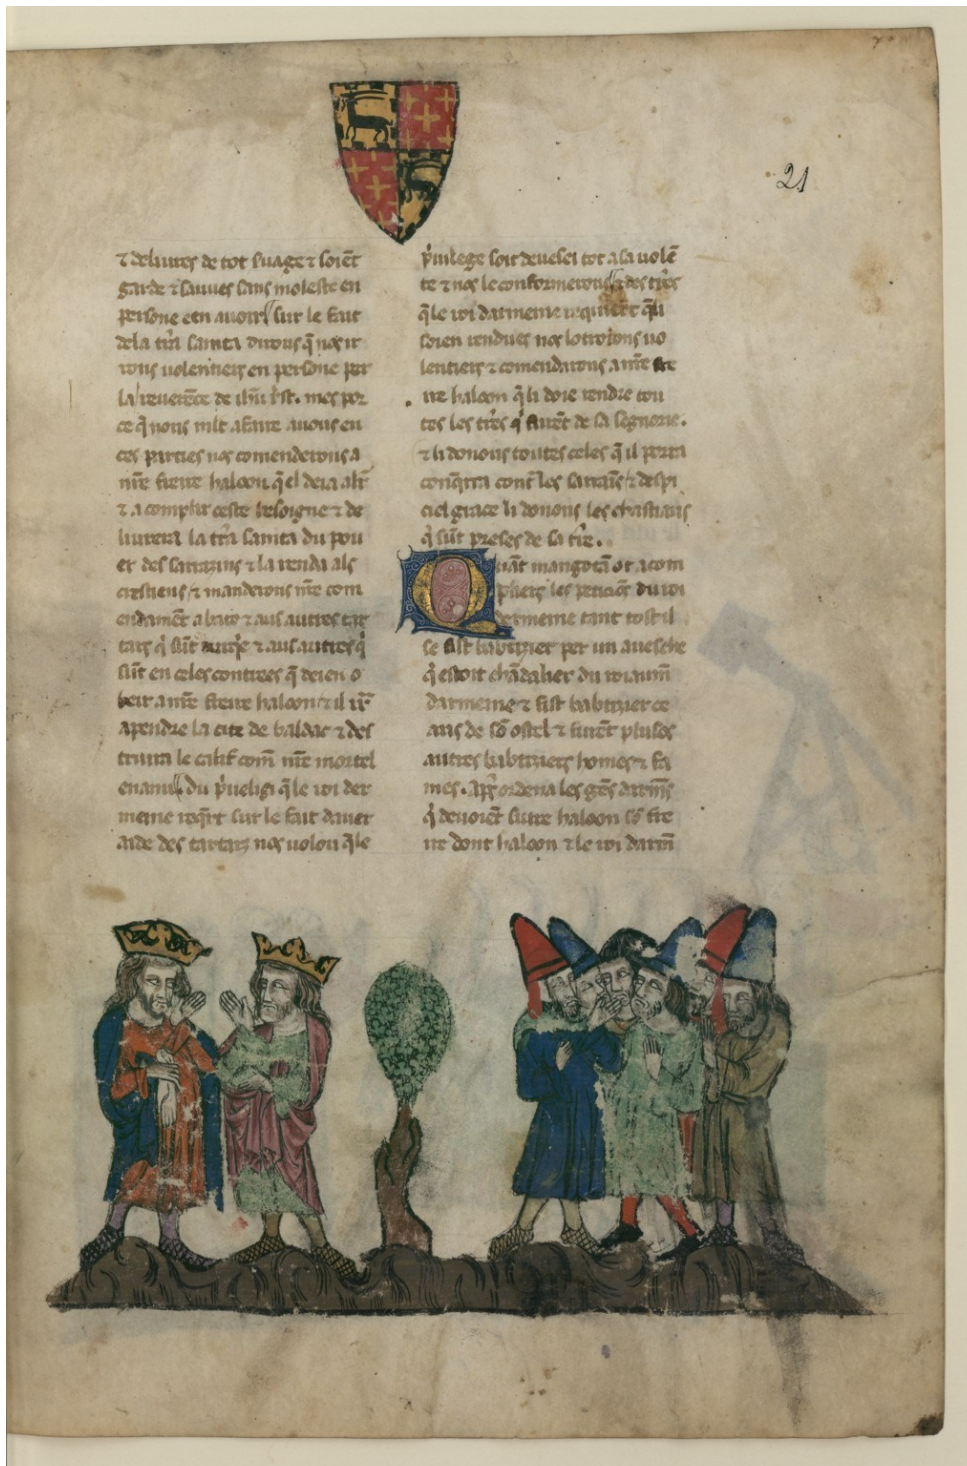 21
⁊ deliures de tot suage ⁊ soiēt
garde ⁊ sauues sans moleste en
persone e en auoir sur le fait
dela tr̄a sainta disons q̄ nos ir
rons uolentiers en persone por
la reuerēce de mes por
ce q̄ nous mlt afaire auons en
ces parties nos comenderons a
nr̄e freire haloon q̄ el deia
⁊ a complir ceste besoigne ⁊ de
liurera la tr̄a sainta du pou
er des sarrazins ⁊ la rendra als
crestiens ⁊ manderons nr̄e com
endamēt abaio ⁊ aus autres tar
tars q̄ sūt ⁊ aus autres q̄
sūt en celes contrees q̄ deien o
beir a nr̄e freire haloon ⁊ il
apendre la cite de baldac ⁊ des
truira le calif com̄ nr̄e mortel
enami du p̄ueligi q̄ le roi der
menie reqr̄t sur le fait dauer
aide des tartars nos uolon q̄ le
p̄uilege soit deuesei tot a sa uolē
te ⁊ nos le confermerons ⁊ des tr̄es
q̄ le roi darmenie requiert q̄ li
soien rendues nos lotroions uo
lentiers ⁊ comendarons a nr̄e fre
ire haloon q̄ li doie rendre tou
tes les tr̄es q̄ furēt de sa segnorie.
⁊ li donons toutes celes q̄ il porra
conq̄rra cont̄ les sarraīs ⁊ despi
ciel grace li donons les chastiaus
q̄ sūt preses de sa tr̄e.
Quāt mangotā ot acom
pliers les peticiōs du roi
dermenie tant tost il
se fist babtizier per un auesche
q̄ estoit chādalier du roiaum̄
darmenie ⁊ fist babtizier ce
aus de sō ostel ⁊ furēt plusōs
autres babtiziers homes ⁊ fa
mes. Ap̄s ordena les gēs darmes
q̄ deuoiēt suire haloon sō fre
ire dont haloon ⁊ le roi darm̄